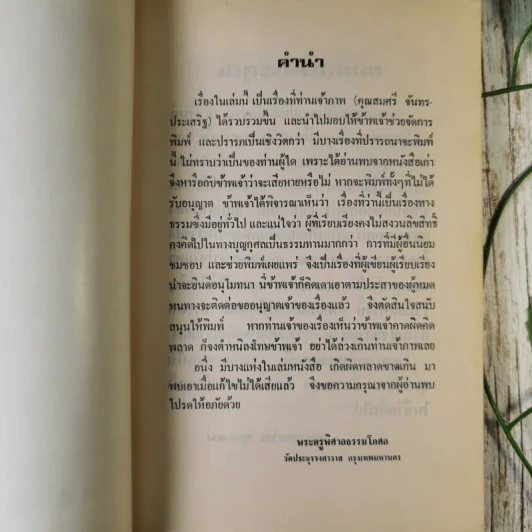 คำนำ
เรื่องในเล่มนี้ เป็นเรื่องที่ท่านเจ้าภาพ (คุณสมศรี จันทร-
ประเสริฐ) ได้รวบรวมขึ้น และนำไปมอบให้ข้าพเจ้าช่วยจัดการ
พิมพ์ และปรารภเป็นเชิงวิตกว่า มีบางเรื่องที่ปรารถนาจะพิมพ์
นี้ ไม่ทราบว่าเป็นของท่านผู้ใด เพราะได้อ่านพบจากหนังสือเก่า
จึงหารือกับข้าพเจ้าว่าจะเสียหายหรือไม่ หากจะพิมพ์ทั้งๆที่ไม่ได้
รับอนุญาต ข้าพเจ้าได้พิจารณาเห็นว่า เรื่องที่ว่านี้เป็นเรื่องทาง
ธรรมซึ่งมีอยู่ทั่วไป และแน่ใจว่า ผู้ที่เรียบเรียงคงไม่สงวนลิขสิทธิ์
คงคิดไปในทางบุญกุศลเป็นธรรมทานมากกว่า การที่มีผู้อื่นนิยม
ชมชอบ และช่วยพิมพ์เผยแพร่ จึงเป็นเรื่องที่ผู้เขียนผู้เรียบเรียง
น่าจะยินดีอนุโมทนา นี่ข้าพเจ้าก็คิดเดาเอาตามประสาของผู้หมด
หนทางจะติดต่อขออนุญาตเจ้าของเรื่องแล้ว จึงตัดสินใจสนับ
สนุนให้พิมพ์ หากท่านเจ้าของเรื่องเห็นว่าข้าพเจ้าคาดผิดคิด
พลาด ก็จงตำหนิลงโทษข้าพเจ้า อย่าได้ล่วงเกินท่านเจ้าภาพเลย
อนึ่ง มีบางแห่งในเล่มหนังสือ เกิดผิดพลาดขาดเกิน มา
พบเอาเมื่อแก้ไขไม่ได้เสียแล้ว จึงขอความกรุณาจากผู้อ่านพบ
โปรดให้อภัยด้วย
พระครูพิศาลธรรมโกศล
วัดประยุรวงศาวาส กรุงเทพมหานคร